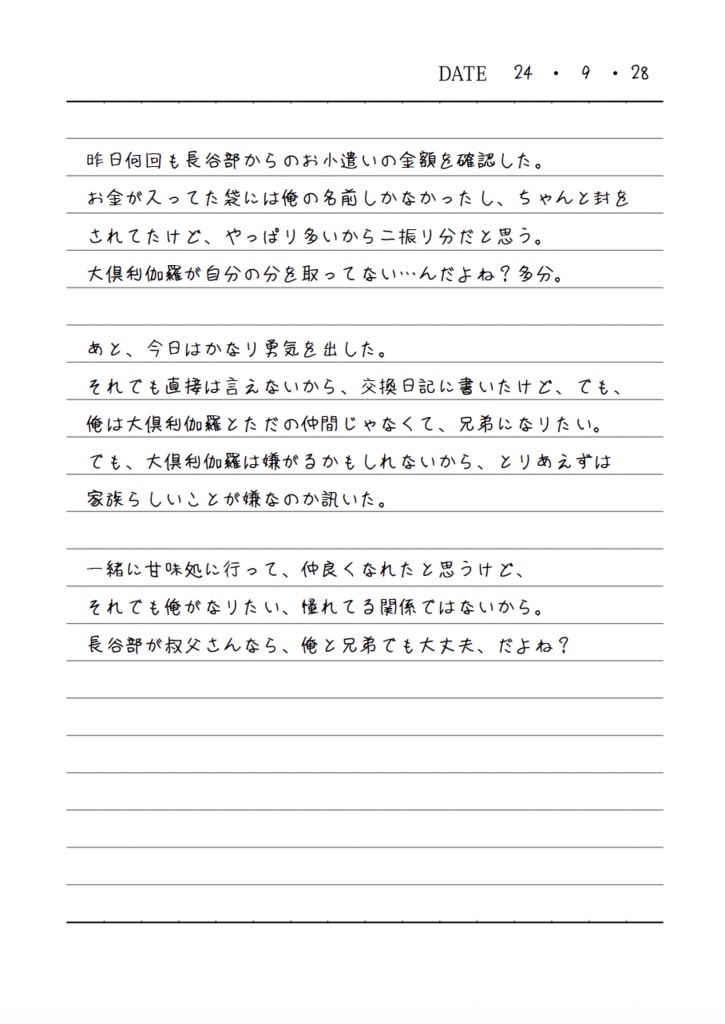 DATE 24・9・28
昨日何回も長谷部からのお小遣いの金額を確認した。
お金が入ってた袋には俺の名前しかなかったし、ちゃんと封を
されてたけど、やっぱり多いから二振り分だと思う。
大倶利伽羅が自分の分を取ってない…んだよね？多分。
あと、今日はかなり勇気を出した。
それでも直接は言えないから、交換日記に書いたけど、でも、
俺は大倶利伽羅とただの仲間じゃなくて、兄弟になりたい。
でも、大倶利伽羅は嫌がるかもしれないから、とりあえずは
家族らしいことが嫌なのか訊いた。
一緒に甘味処に行って、仲良くなれたと思うけど、
それでも俺がなりたい、憧れてる関係ではないから。
長谷部が叔父さんなら、俺と兄弟でも大丈夫、だよね？